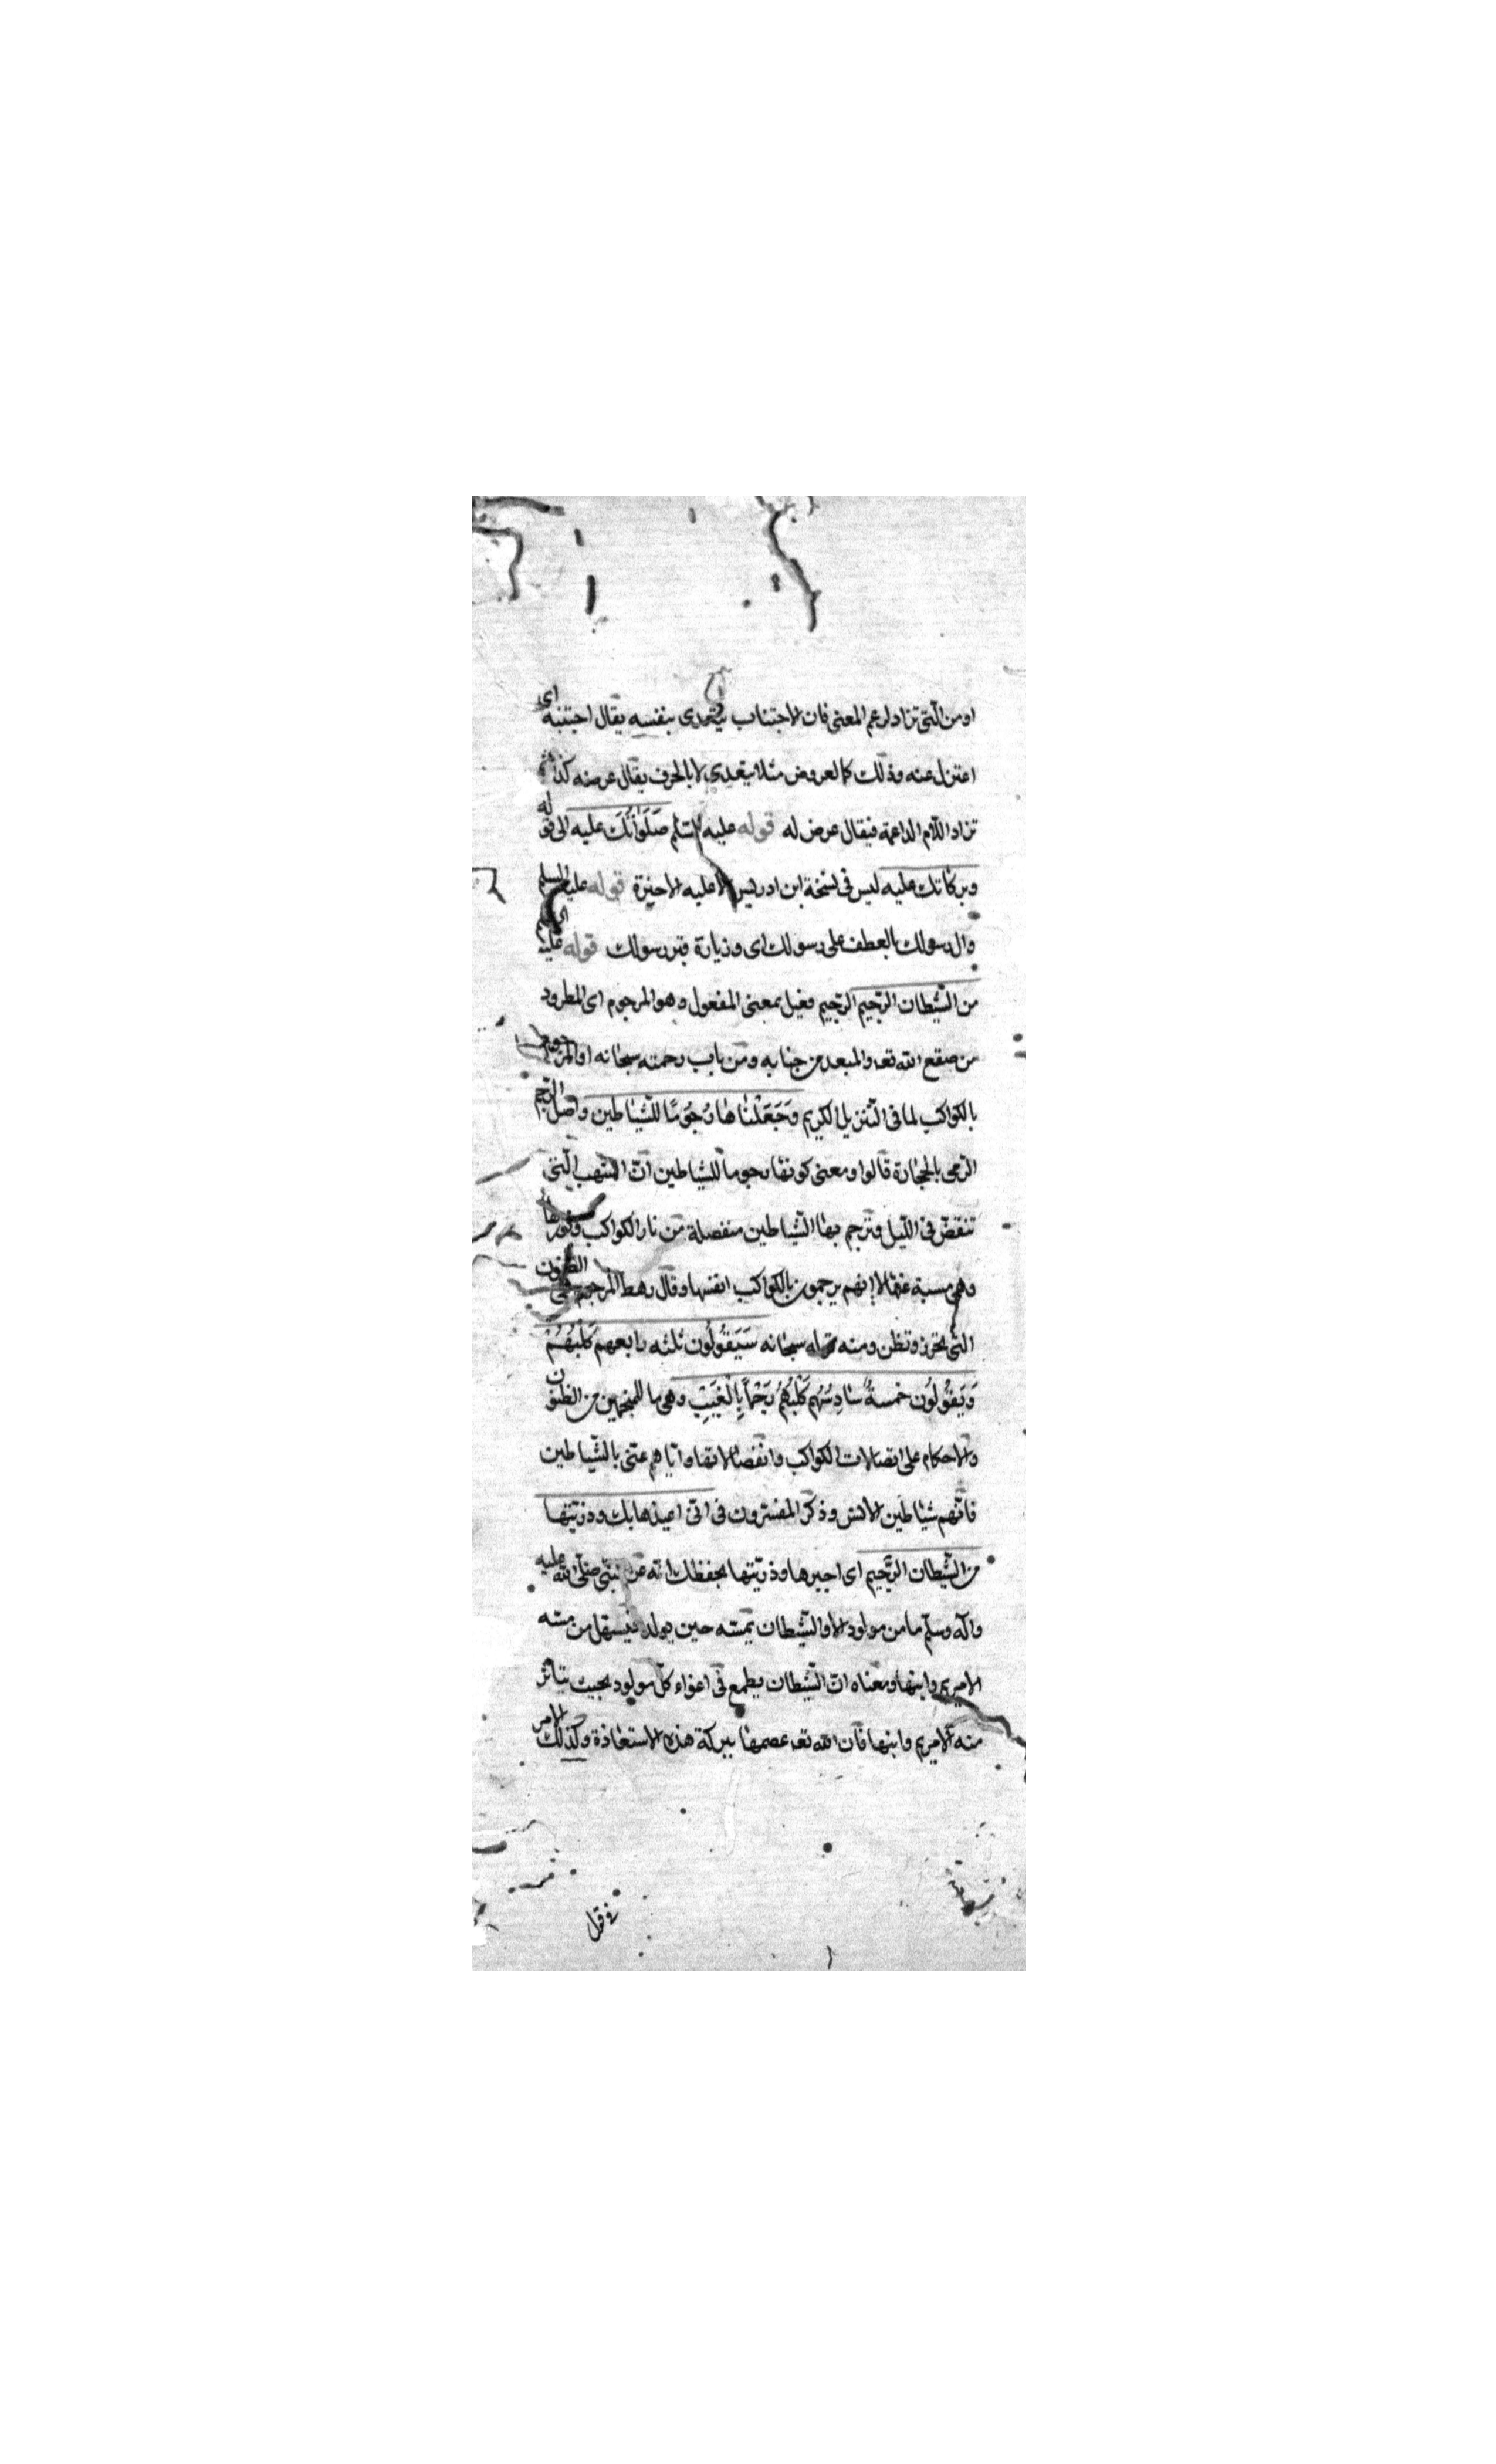 او من الّتي تزاد لدعم المعنى فان الاجتناب يتعدى بنفسه يقال اجتنبه اى
اعتزل عنه وذلك كالعروض مثلا يتعدى لا بالحرف يقال عرضه كذا ثم
تزاد اللام الداعمة فيقال عرض له قوله عليه السّلم صَلَوَاتُكَ عليه الى قوله
وبركاتك عليه ليس في نسخة ابن ادريس الا عليه الاخيرة قوله عليه السلم
وال رسولك بالعطف على رسولك اى وزيارة قبر رسولك قوله عليه
من الشّيطان الرّجيم الرّجيم فعيل بمعنى المفعول وهو المرجوم اى المطرود
من صقع الله تعہ والمبعد من جنابه ومن باب رحمته سبحانه او المرجوم
بالكواكب لما في التّنزيل الكريم وَجَعَلْنَاهَا رُجُومًا لِلشّيَاطين واصل الرّجم
الرّمى بالحجارة قالوا ومعنى كونها رجوما للشياطين انّ الشهب الّتي
تنقضّ في اللّيل وترجم بها الشّياطين منفصلة من نار الكواكب ونورها
وهى مسببة عنها لا إنهم يرجمون بالكواكب انفسها وقال رهط المرجوم الظنون
التى تحزر وتظن ومنه قوله سبحانه سَيَقُولُون ثلثه رابعهم كَلْبُهُمْ
وَيَقُولُون خمسةٌ سَادِسُهُم كَلْبُهُمْ رَجْمًا بِالْغَيْبِ وهى ما للمنجمين من الظنون
والاحكام على اتصالات الكواكب وانفصالاتها واياهم عنى بالشّياطين
فانّهم شياطين الانس وذكر المفسّرون في انّى اعيذها بك وذرّيتها
من الشّيطان الرّجيم اى اجيرها وذرّيتها بحفظك انّه عن النبىّ صلّى الله عليه
وآله وسلّم ما من مولود الا والشّيطان يمسّه حين يولد فيستهل من مسّه
الا مريم وابنها ومعناه انّ الشّيطان يطمع في اغواء كلّ مولود بحيث يتاثر
منه الا مريم وابنها فان الله تعہ عصمها ببركة هذه الاستعاذة وكذلك الامر
في قول